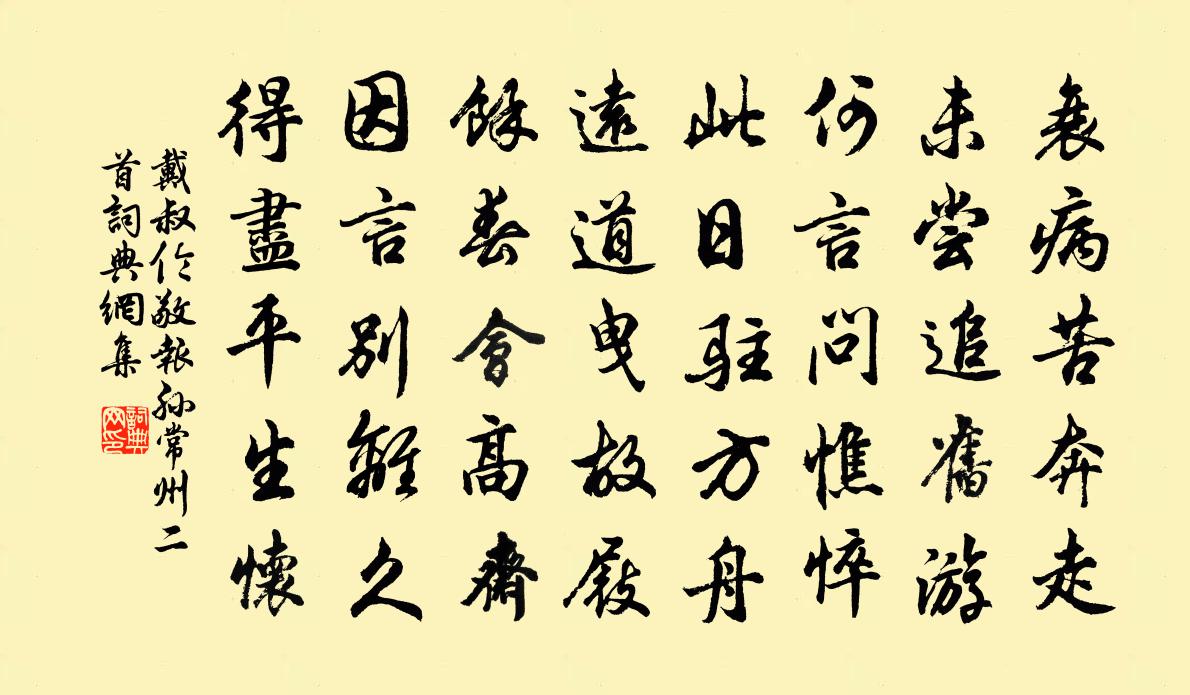 衰病苦奔走
未嘗追舊游
何言問憔悴
此日駐方舟
遠道曳故屐
餘春會高齋
因言別離久
得盡平生懷
戴叔伦敬報孙常州二
首詞典網集
詞典网印